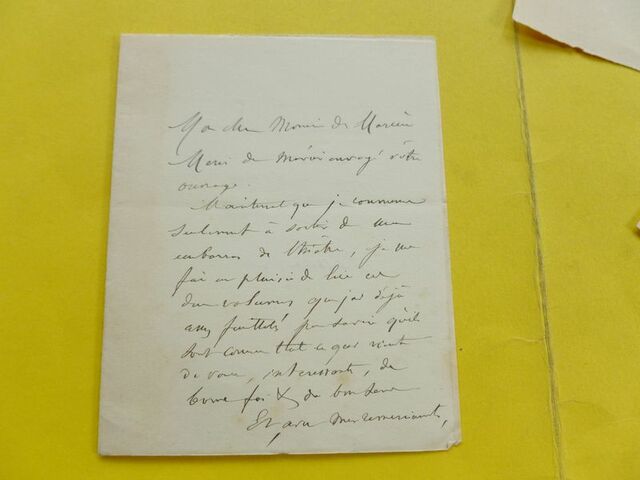 Mon cher Monsieur de
Merci de m'avoir envoyé votre
ouvrage.
Maintenant que je commence
seulement à sortir de mes
embarras de théâtre, je me
fais un plaisir de lire ces
deux volumes que j'ai déjà
assez feuilletés pour savoir qu'ils
sont comme tout ce qui vient
de vous, intéressants, de
bonne foi & de bon sens
Et, avec mes remerciements,